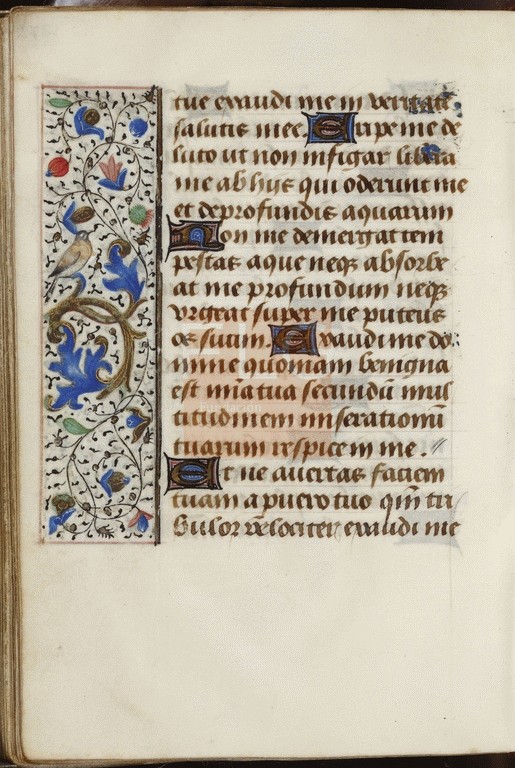 tue exaudi me in veritate
salutis mee. Eripe me de
luto ut non infigar libera
me ab hijs qui oderunt me
et de profundis aquarum
Non me demergat tem
pestas aque neqꝫ absorbe
at me profundum neqꝫ
vrgeat super me puteus
os suum. Exaudi me do
mine quoniam benigna
est mĩa tua secundũ mul
titudinem miserationũ
tuarum respice in me.
Et ne auertas faciem
tuam a puero tuo qm̃ tri
bulor velociter exaudi me